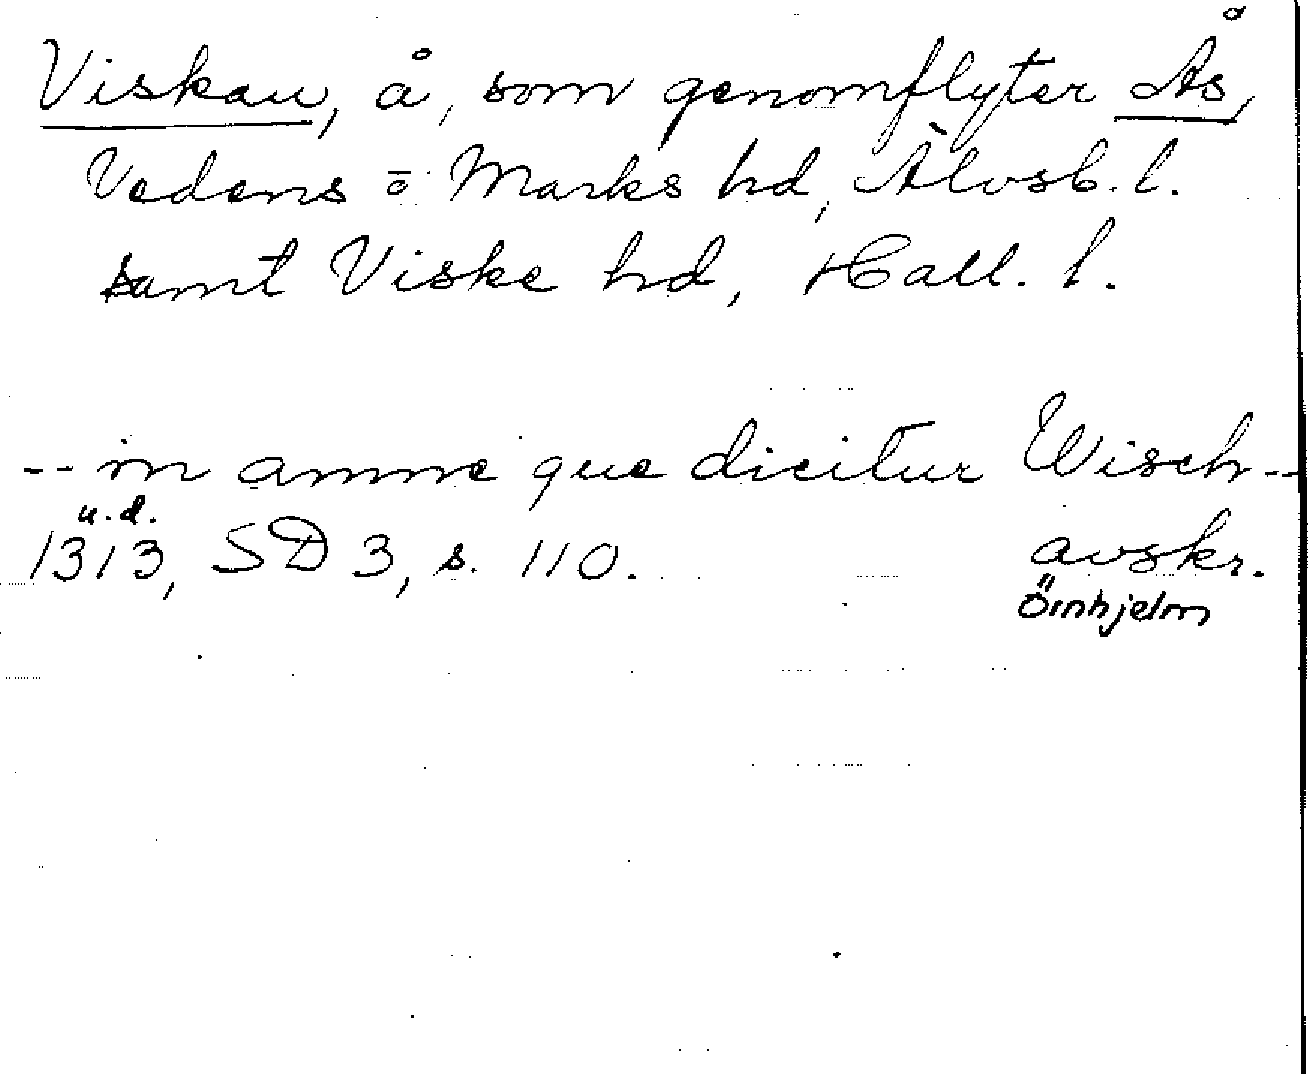 Viskan, å, som genomflyter Ås,
Vedens o Marks hd, Älvsb. l.
samt Viske hd, Hall. l.
-- in amne que dicitur Wisch --
u.d.
1313, SD 3, s. 110. avskr.
Örnhjelm